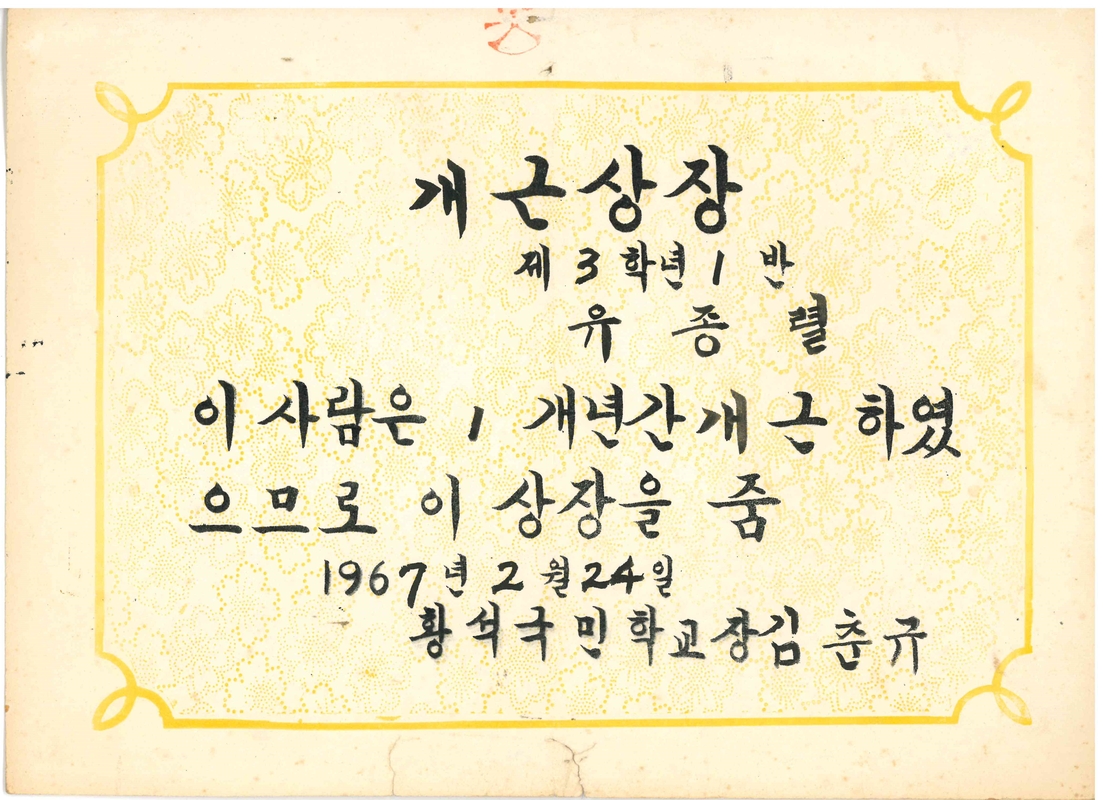 개근상장
제 3 학년 1 반
유 종 렬
이 사람은 1 개년간개근 하였
으므로 이 상장을 줌
1967년 2월24일
황석국민학교장김춘규